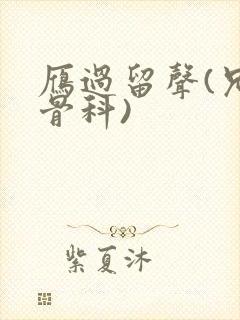 雁過留聲(兄
骨科)
紫夏沐